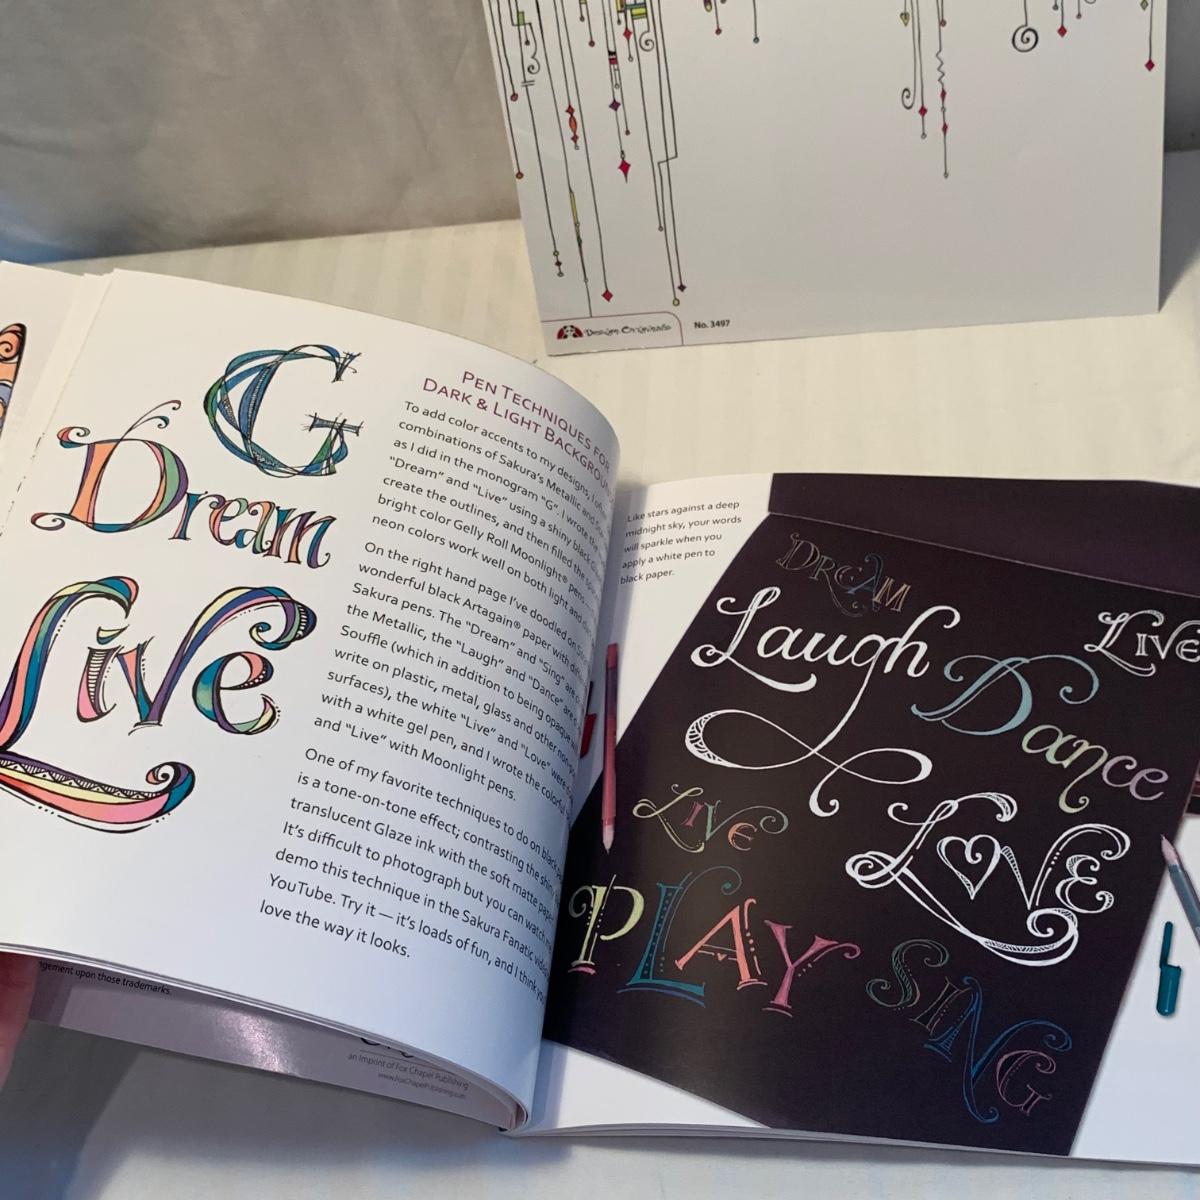 Design Originals
No. 3497
G
Dream
Live
PEN TECHNIQUES FOR
DARK & LIGHT BACKGROU
To add color accents to my designs, I
combinations of Sakura's Metallic and
as I did in the monogram "G". I wrote the
"Dream" and "Live" using a shiny black
create the outlines, and then filled the
bright color Gelly Roll Moonlight® pens
neon colors work well on both light and
On the right hand page I've doodled on
wonderful black Artagain® paper with
Sakura pens. The "Dream" and "Sing" are
the Metallic, the "Laugh" and "Dance" are
Souffle (which in addition to being opaque
write on plastic, metal, glass and other
surfaces), the white "Live" and "Love" were
with a white gel pen, and I wrote the colorful
and "Live" with Moonlight pens.
One of my favorite techniques to do on black
is a tone-on-tone effect; contrasting the
translucent Glaze ink with the soft matte
It's difficult to photograph but you can watch
demo this technique in the Sakura Fanatic
YouTube. Try it — it's loads of fun, and I think
love the way it looks.
gement upon those trademarks.
an Imprint of Fox Chapel Publishing
www.FoxChapelPublishing.com
Like stars against a deep
midnight sky, your words
will sparkle when you
apply a white pen to
black paper.
DREAM
Laugh
LIVE
Dance
LIVE
LOVE
PLAY
SING